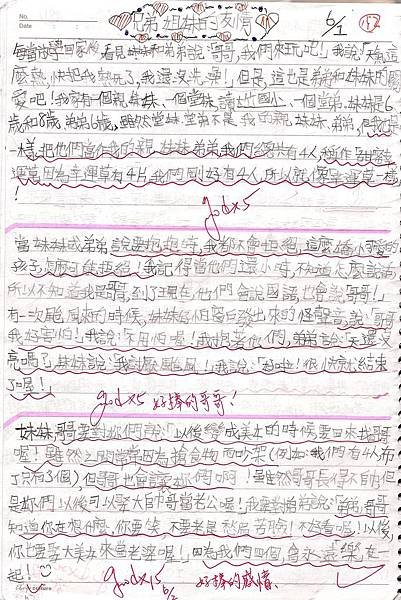 No.
Date
兄弟姐妹的友情
6/1
每當放學回家後,看見妹妹和弟弟說「哥哥,我們來玩吧!」我說「天氣這
麼熱,快把我熱死了,我還沒洗澡!」但是,這也是弟弟和妹妹的關
愛吧!我家有一個親妹妹、一個堂妹,讀 國小、一個堂弟,妹妹是6
歲和8歲,弟弟6歲,雖然堂妹堂弟不是我的親妹妹、弟弟,但我是
一樣把他們當作我的親妹妹、弟弟,我們總共有4人,稱作
運草,因為幸運草有4片,我們剛好有4人,所以就像幸運草一樣
!
godx5
當妹妹或弟弟說要抱抱時,我都不會拒絕,這麼嬌小可愛的
孩子怎麼可能拒絕!我記得當他們還小時,不知道怎麼說話,
所以不知道我是哥哥,到了現在,他們會說國語,也會說「哥哥!」
有一次颱風來的時候,妹妹 怕窗口發出來的怪聲音,說「哥哥
我好害怕!」我說「不用怕喔!」我抱著他們,弟弟說「天還沒
亮嗎?」妹妹說「我討厭颱風!」我說「好啦!很快就結束
了喔!」
godx5 好棒的哥哥!
妹妹,哥哥要對妳們說「以後變成美女的時候要回來找哥哥
喔!雖然之間常因為搶食物而吵架(例如:我們有4人,布
丁只有3個),但哥哥也會讓妳們啊!雖然哥哥長得不帥,但
是妳們以後可以娶大帥哥當老公喔!我要對弟弟說「弟弟,哥哥
知道你在想什麼,你要笑,不要老是愁眉苦臉!不好看喔!以後,
你也要娶大美女來當老婆喔!」因為我們四個,會永遠 在一
起!
godx15
6/2
好棒的感情